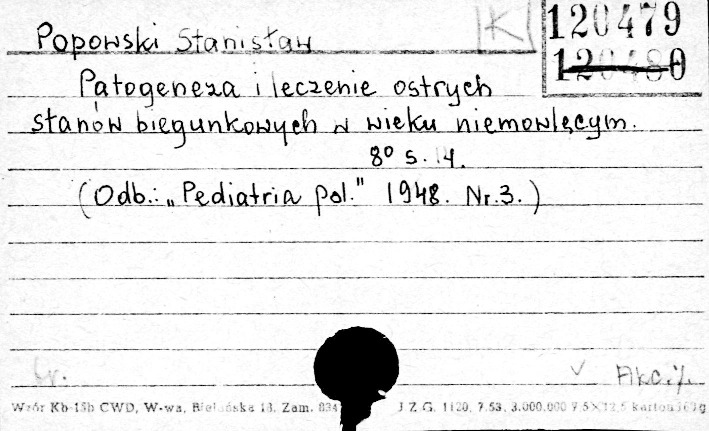 K
120479
120480
Popowski Stanisław
Patogeneza i leczenie ostrych
stanów biegunkowych w wieku niemowlęcym.
8° s. 14.
(Odb.: „Pediatria pol." 1948. Nr. 3.)
Akc. 1/.
Wzór Kb-15b CWD, W-wa, Bielańska 18. Zam. 834
J Z G. 1120. 7.53. 3.000.000 7.5×12.5 karton